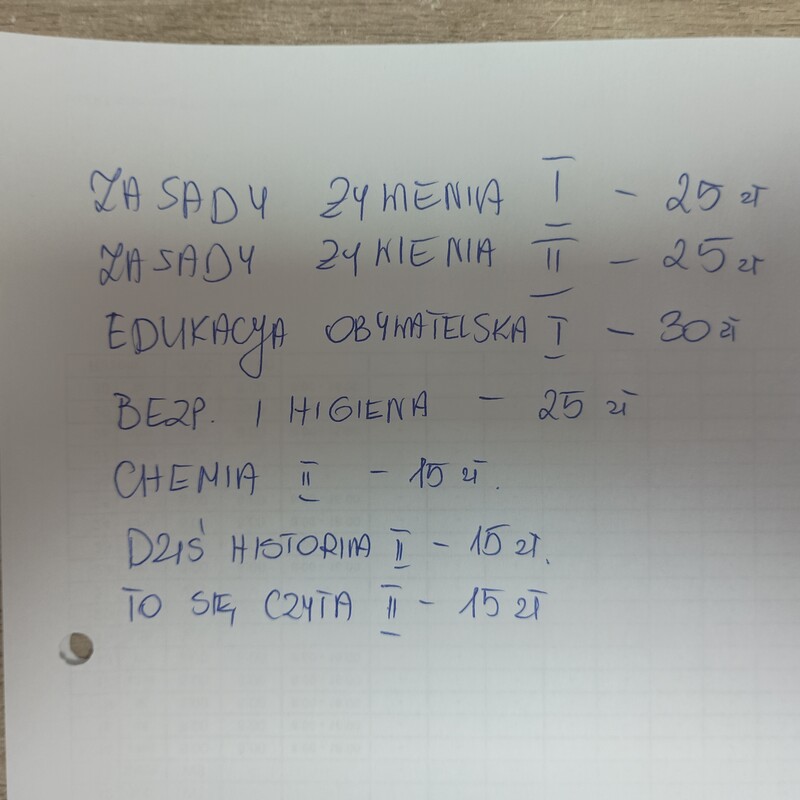 ZASADY ŻYWIENIA I - 25 zł
ZASADY ŻYWIENIA II - 25 zł
EDUKACJA OBYWATELSKA I - 30 zł
BEZP. I HIGIENA - 25 zł
CHEMIA II - 15 zł.
DZIŚ HISTORIA II - 15 zł.
TO SIĘ CZYTA II - 15 zł